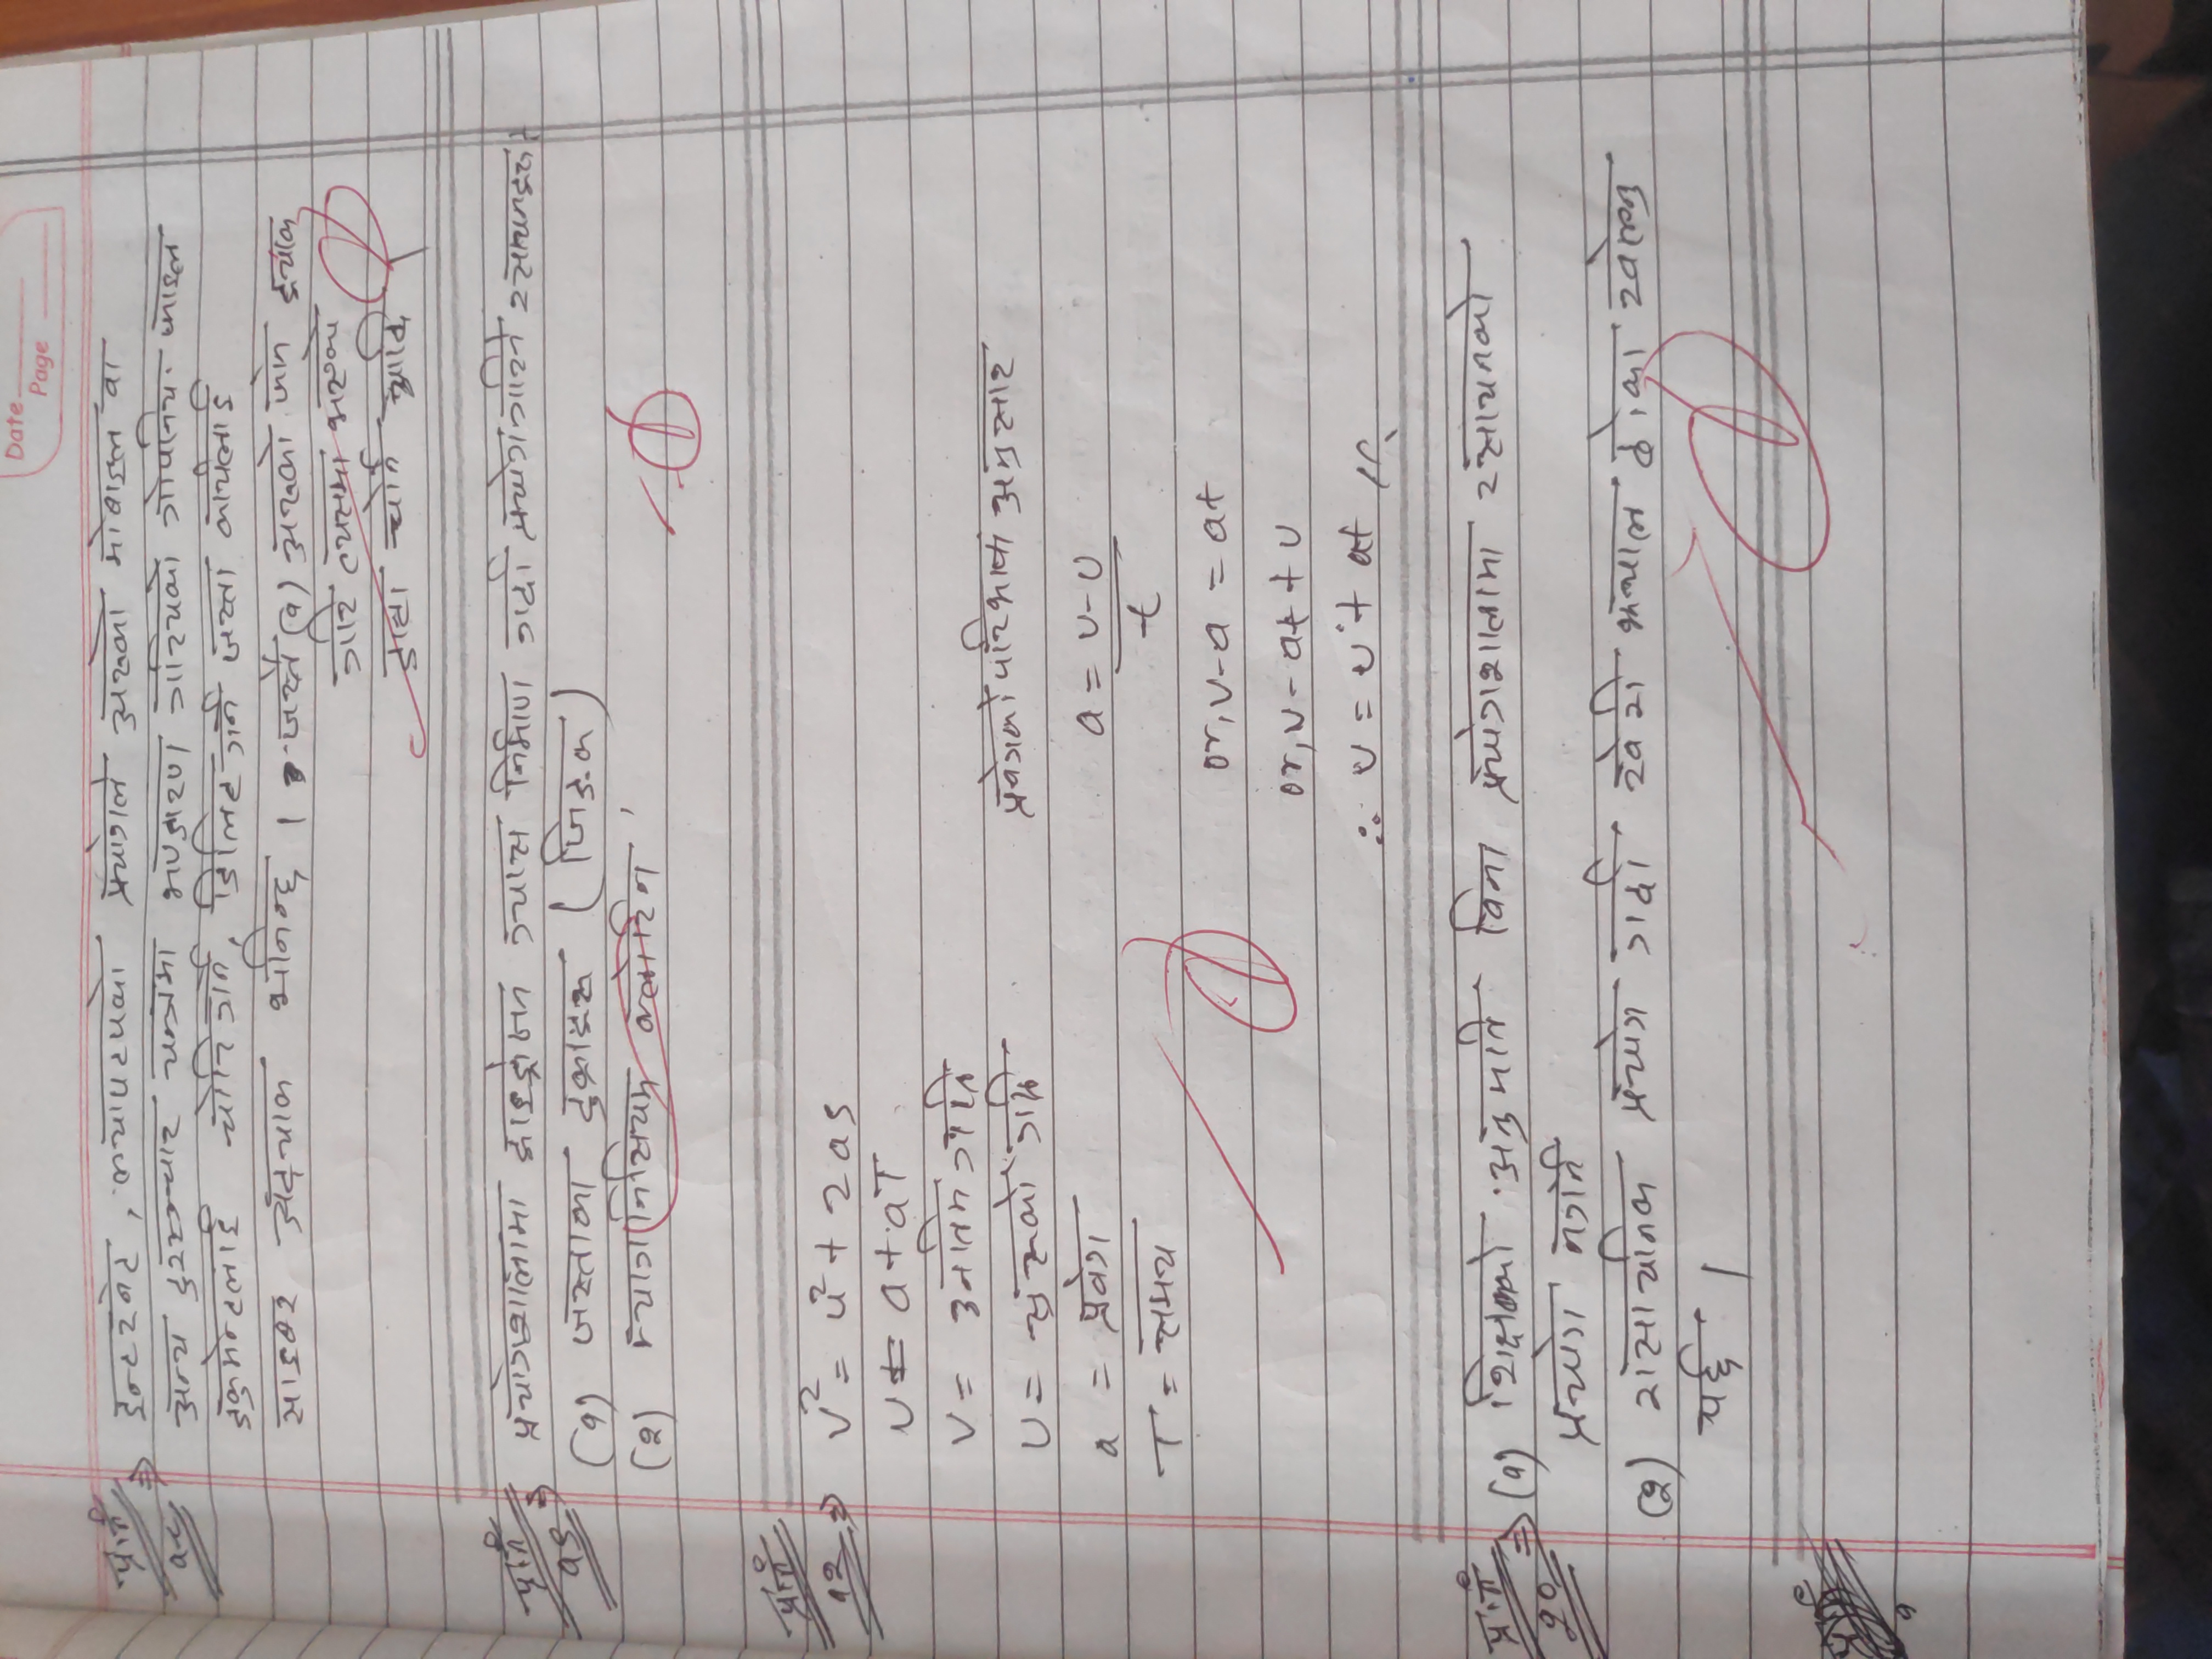 Date
Page
प्र.नं
१८ ⇒ इन्टरनेट, ल्यापटपको प्रयोगले अरुको मोबाइल वा
अन्य दुरसञ्चार यन्त्रमा भण्डारण गरियको गोपनिय फाइल
डकुमेन्टलाई चोरि गर्ने, डिलिट गर्ने जस्ता कार्यलाई
साइबर भनिन्छ । जस्तै (१) अरुको फोन ह्याक
गरि त्यसमा भएको
डाटा चोर्ने आदि
प्र.नं
१९ ⇒ प्रयोगशालामा हाइड्रोजन ग्यास निर्माण गर्दा प्रयोग गरिने रसायनहरू
(१) जस्ताका टुक्राहरू (जिङक)
(२) म्याग्निसियम क्लोरिन
प्र.नं
१२ ⇒ v² = u² + 2as
v = a + aT
v = अन्तिम गति
u = सुरुको गति
प्रवेगको परिभाषा अनुसार
a = प्रवेग
a = v-u
T = समय
t
or, v-a = at
or, v - at + u
∴ v = u + at //
प्र.नं
२० ⇒ (१) शिक्षकको अनुमति विना प्रयोगशालामा रसायनको
प्रयोग नगर्ने
(२) रासायनिक प्रयोग गर्दा खेरी भ्याल ढोका खोल्नु
पर्छ ।
१